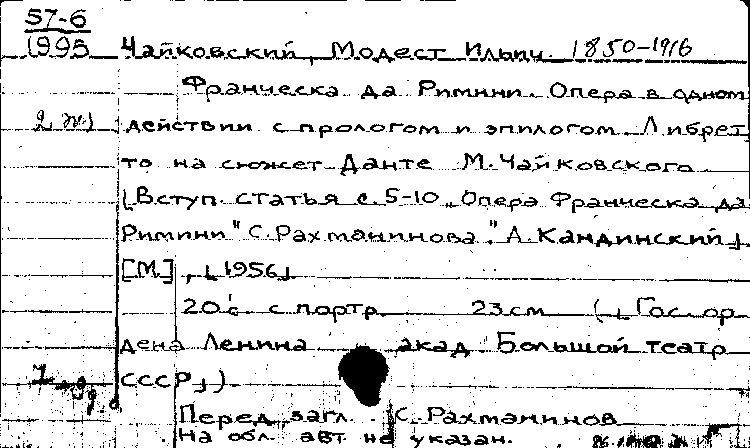 57-6
1995 Чайковский, Модест Ильич. 1850-1916
Франческа да Римини. Опера в одном
2 действии с прологом и эпилогом. Либрет
то на сюжет Данте М. Чайковского.
[Вступ. статья с. 5-10 „Опера Франческа да
Римини" С. Рахманинова." А. Кандинский]
[М.], [1956]
20 с. с портр. 23 см ([Гос. ор
дена Ленина акад. Большой театр
СССР])
Перед загл. С. Рахманинов
На обл. авт не указан.